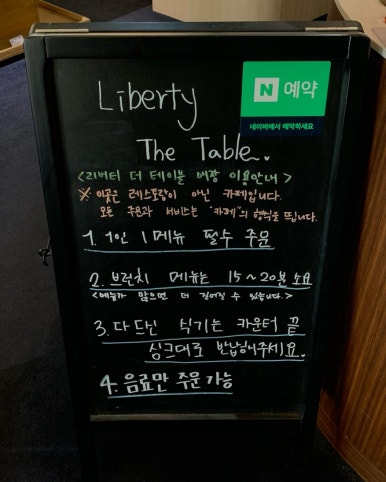 Liberty
N 예약
네이버에서 예약하세요
The Table.
<리버티 더 테이블 매장 이용안내>
※ 이곳은 레스토랑이 아닌 카페입니다.
모든 주문과 서비스는 "카페"의 형식을 띕니다.
1. 1인 1메뉴 필수 주문
2. 브런치 메뉴는 15~20분 소요
<메뉴가 많으면 더 길어질 수 있습니다.>
3. 다 드신 식기는 카운터 끝
싱크대로 반납해주세요.
4. 음료만 주문 가능